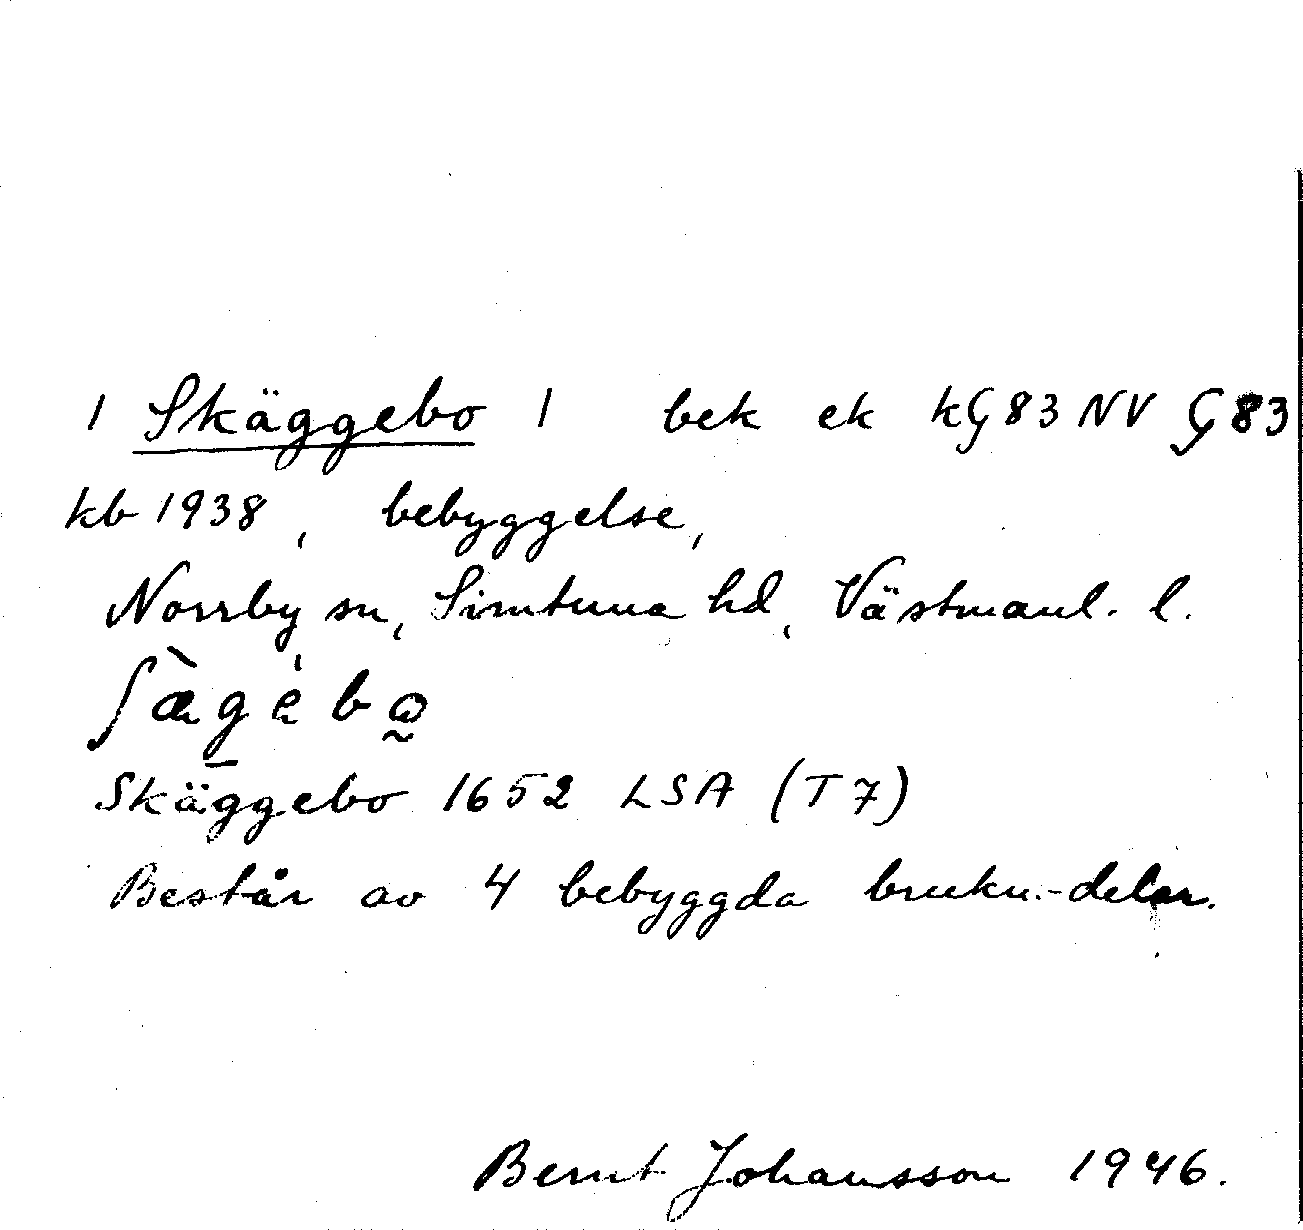 1 Skäggebo 1 bek ek kG83NV G83
kb 1938, bebyggelse,
Norrby sn, Simtuna hd, Västmanl. l.
Skäggebo 1652 LSA (T7)
Består av 4 bebyggda brukn.-delar.
Bernt Johansson 1946.